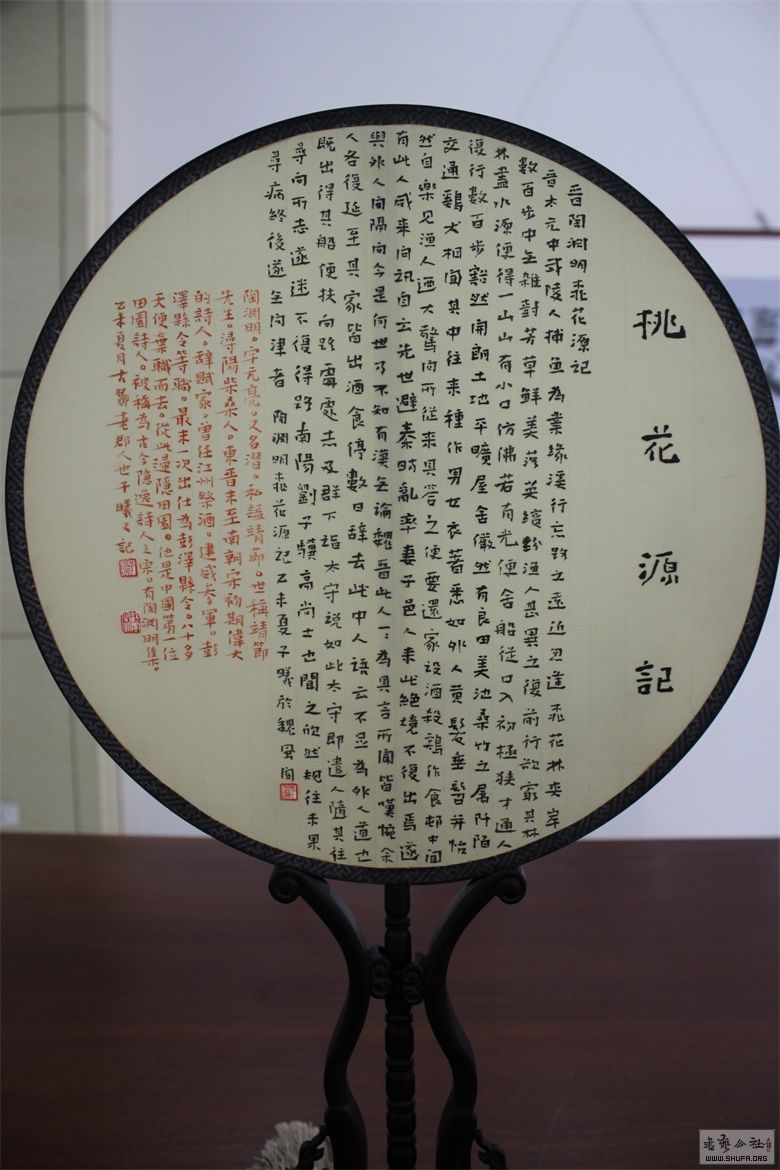 桃花源記
晉陶淵明桃花源記
晉太元中武陵人捕魚為業緣溪行忘路之遠近忽逢桃花林夾岸
數百步中无雜樹芳草鮮美落英繽紛漁人甚異之復前行欲窮其林
林盡水源便得一山山有小口仿佛若有光便舍船從口入初極狹才通人
復行數百步豁然開朗土地平曠屋舍儼然有良田美池桑竹之屬阡陌
交通鷄犬相聞其中往来種作男女衣著悉如外人黄髮垂髫并怡
然自樂見漁人迺大驚問所從来具答之便要還家設酒殺鷄作食邨中聞
有此人咸来問訊自云先世避秦時亂率妻子邑人来此絶境不復出焉遂
與外人間隔問今是何世乃不知有漢无論魏晉此人一一為具言所聞皆嘆惋余
人各復延至其家皆出酒食停數日辞去此中人語云不足為外人道也
既出得其船便扶向路處處志之及群下詣太守説如此太守即遣人隨其往
尋向所志遂迷不復得路南陽劉子驥高尚士也聞之欣然規往未果
尋病終後遂无問津者 陶淵明桃花源記乙未夏子曦於魏風閣
陶淵明。字元亮。又名潛。私謚靖節。世稱靖節
先生。尋陽柴桑人。東晋末至南朝宋初期偉大
的詩人。辞賦家。曾任江州祭酒。建威參軍。彭
澤縣令等職。最末一次出仕為彭澤縣令。八十多
天便棄職而去。從此歸隱田園。他是中國第一位
田園詩人。被稱為古今隱逸詩人之宗。有陶淵明集。
乙未夏月古鄴老郡人也于曦之記
書藝公社
WWW.SHUFA.ORG